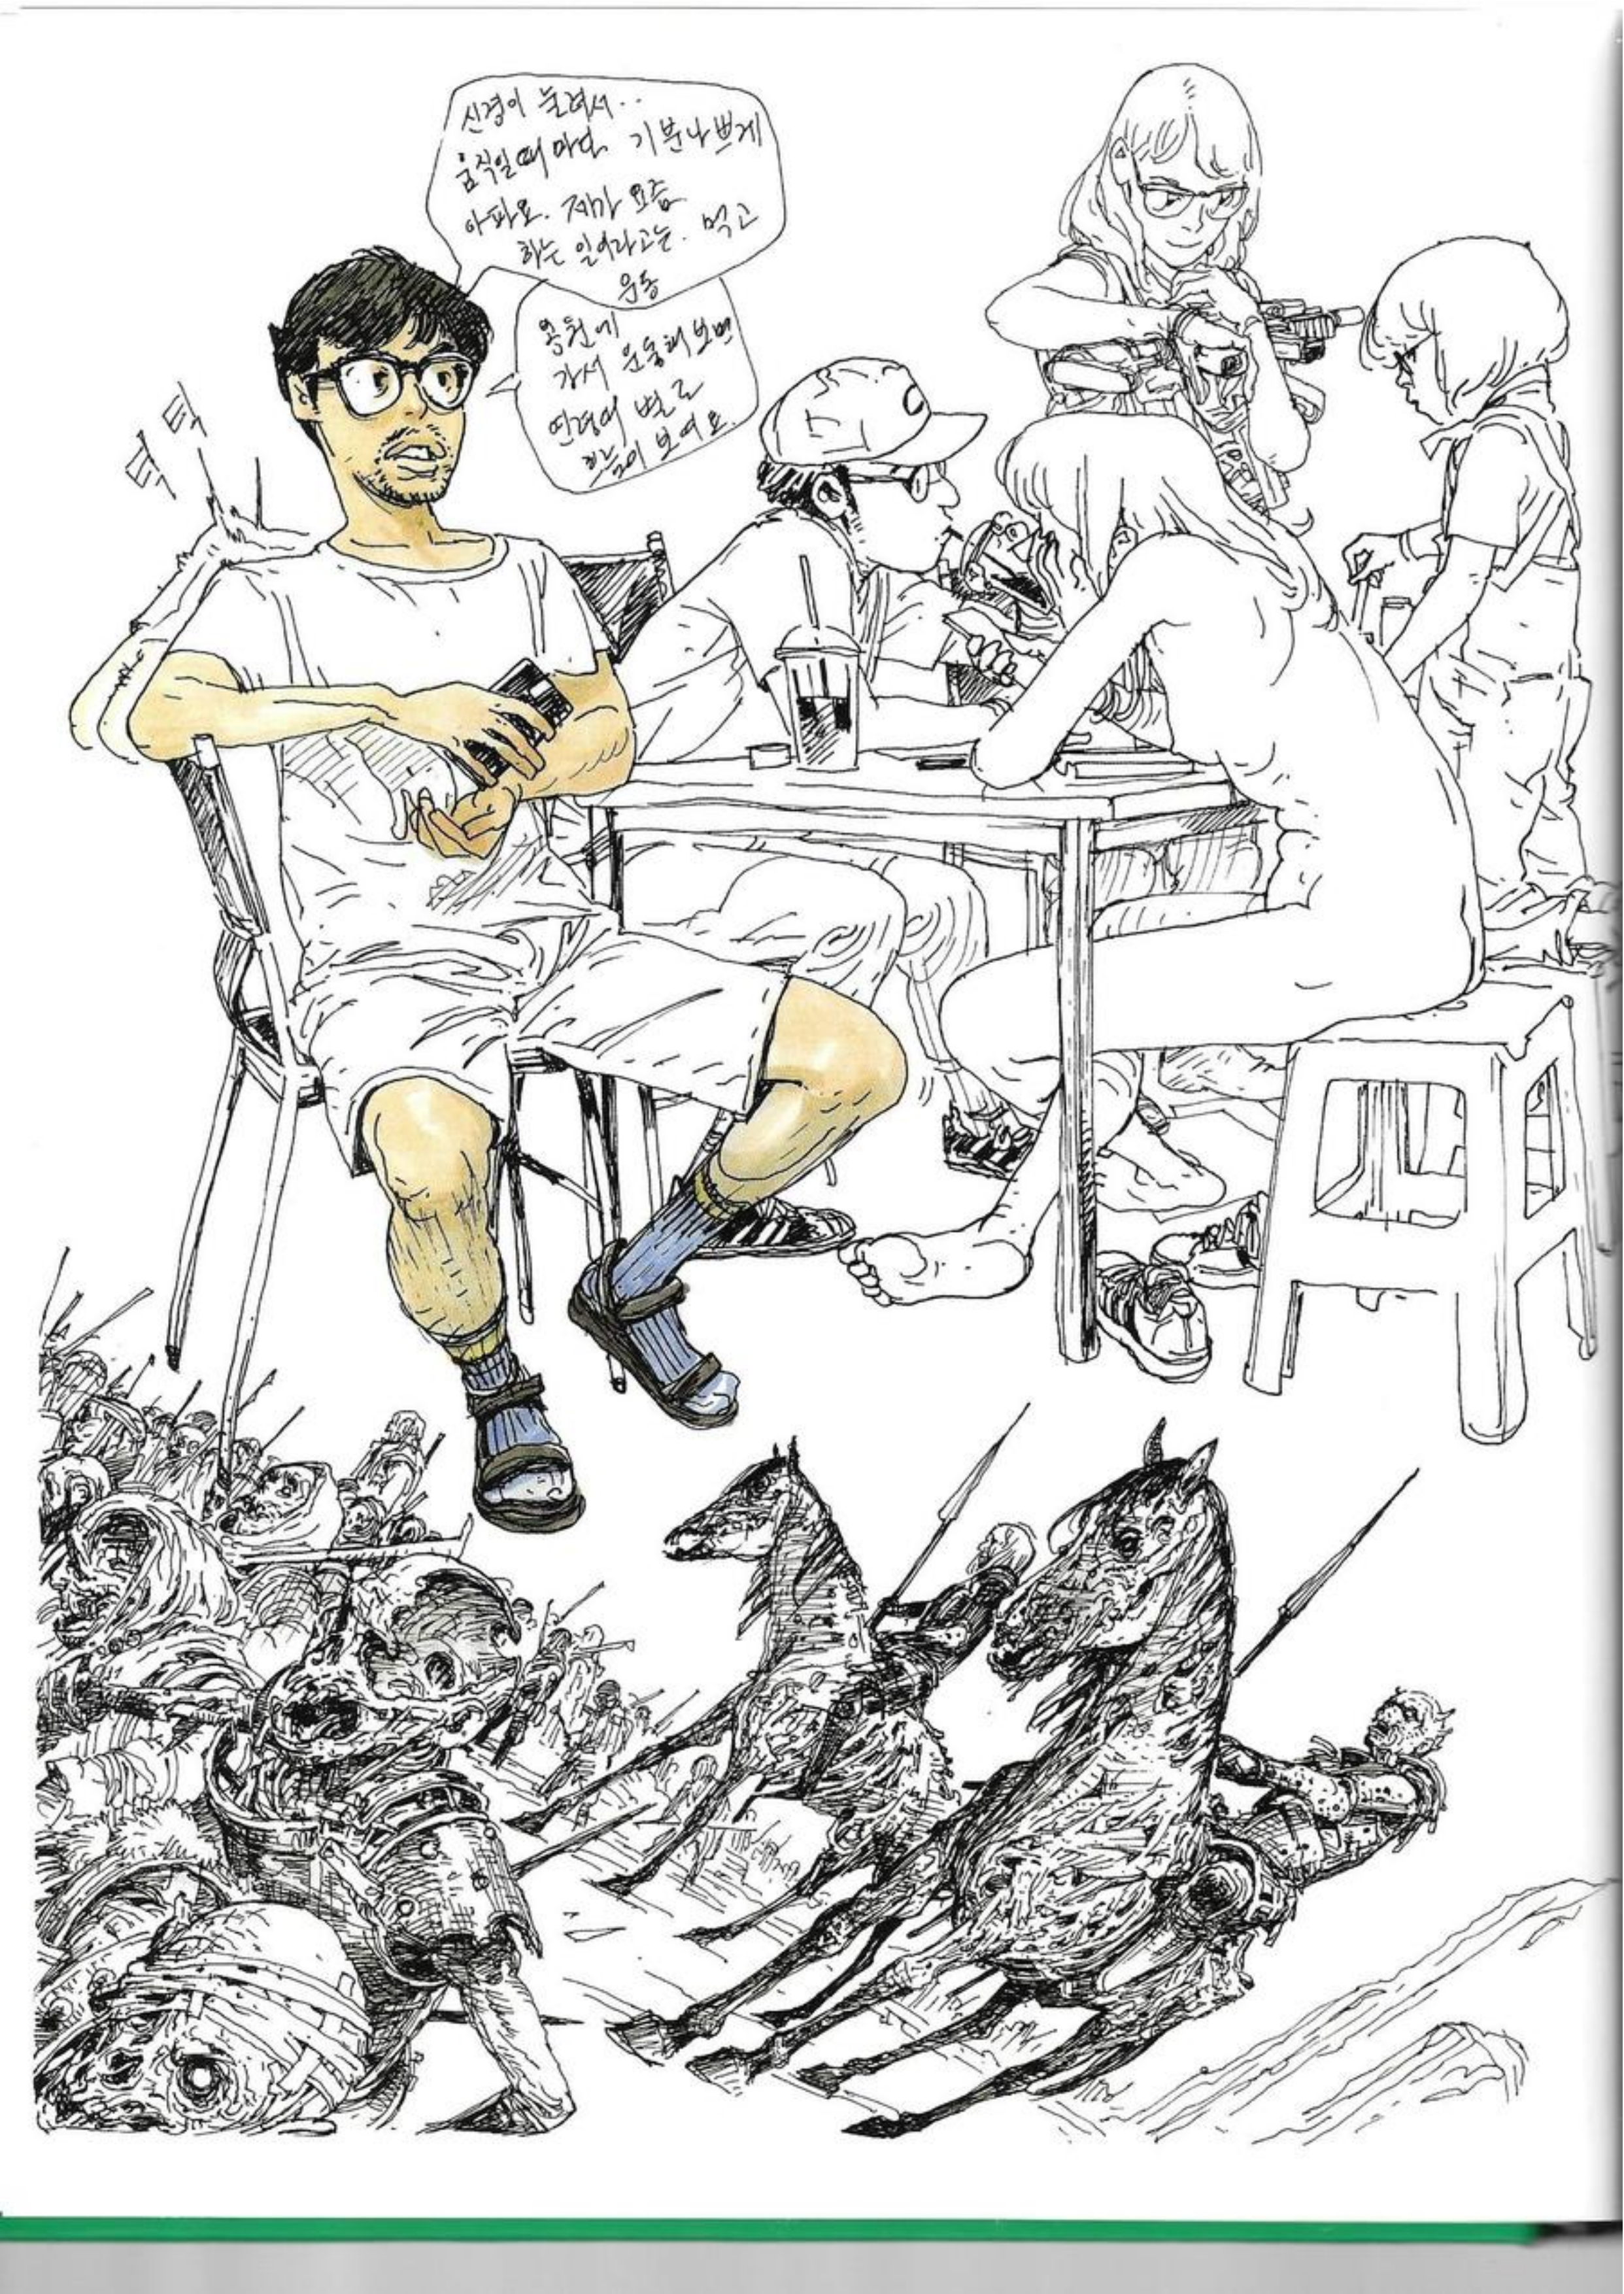 신경이 눌려서..
움직일때 마다 기분나쁘게
아파요. 제가 요즘
하는 일이라고는. 먹고
운동
공원에
가서 운동해보면
연령이 별로
툭 툭